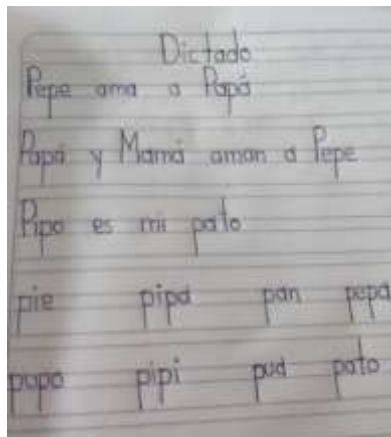 Dictado
Pepe ama a Papá
Papá y Mamá aman a Pepe
Pipo es mi pato
pie pipa pan pepa
pupo pipi pud pato